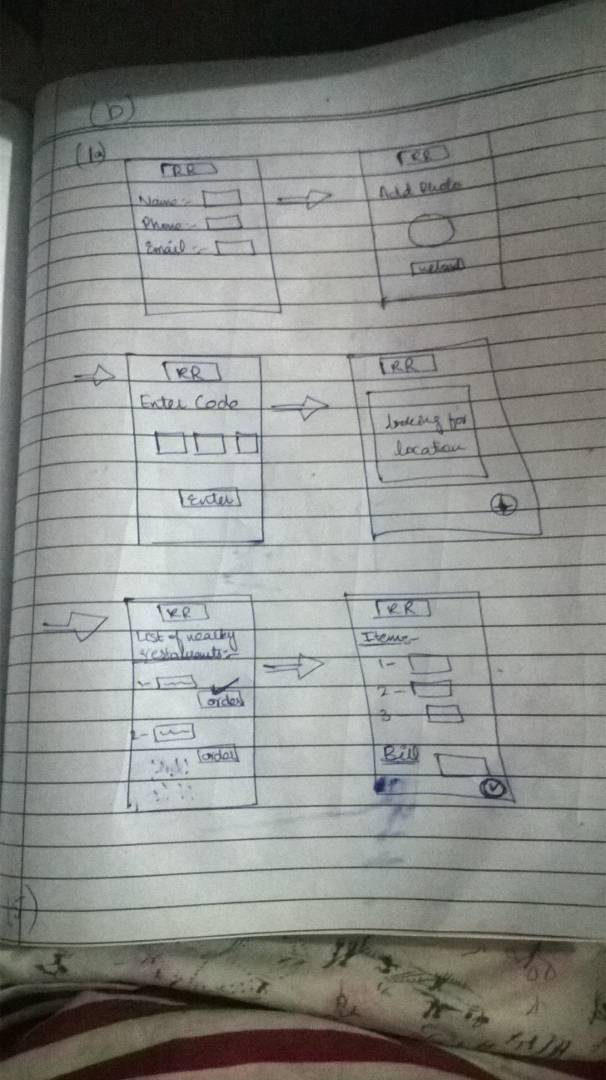 (b)
(1a)
RR
Name:-
Phone:-
Email:-
RR
Add Photo
upload
RR
Enter Code
Enter
RR
looking for
location
RR
List of nearby
restaurants:-
1-
order
2-
order
RR
Items-
1-
2-
3-
Bill